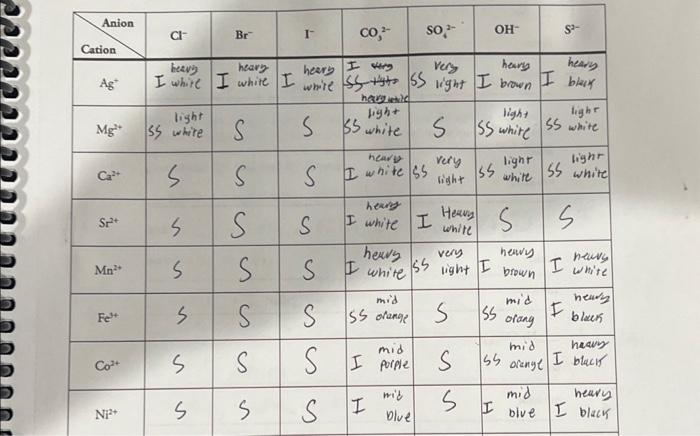 Anion
Cation
Cl⁻ Br⁻ I⁻ CO₃²⁻ SO₄²⁻ OH⁻ S²⁻
Ag⁺ I heavy white I heavy white I heavy white I heavy white SS very light I heavy brown I heavy black
Mg²⁺ SS light white S S SS light white S SS light white SS light white
Ca²⁺ S S S I heavy white SS very light SS light white SS light white
Sr²⁺ S S S I heavy white I Heavy white S S
Mn²⁺ S S S I heavy white SS very light I heavy brown I heavy white
Fe³⁺ S S S SS mid orange S SS mid orang I heavy black
Co²⁺ S S S I mid purple S SS mid orange I heavy black
Ni²⁺ S S S I mid blue S I mid blue I heavy black